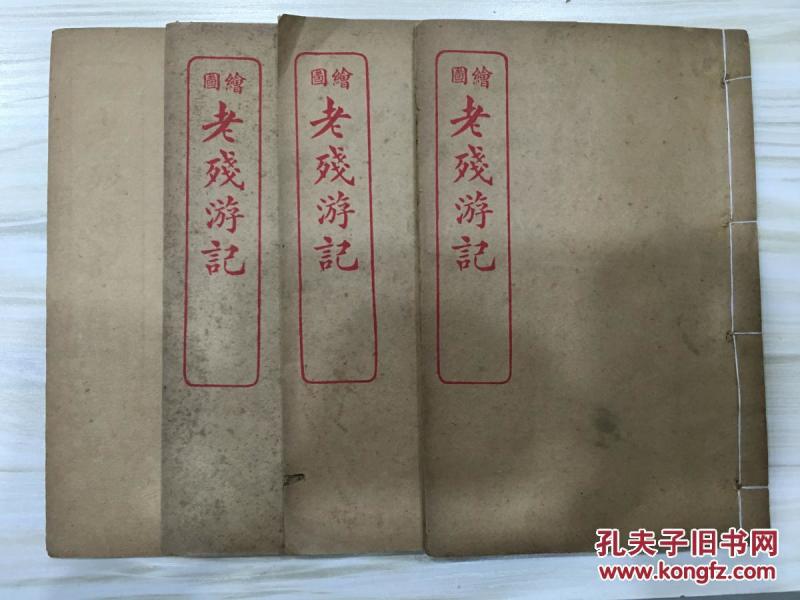 繪圖
老殘游記
繪圖
老殘游記
繪圖
老殘游記
孔夫子旧书网
www.kongfz.com